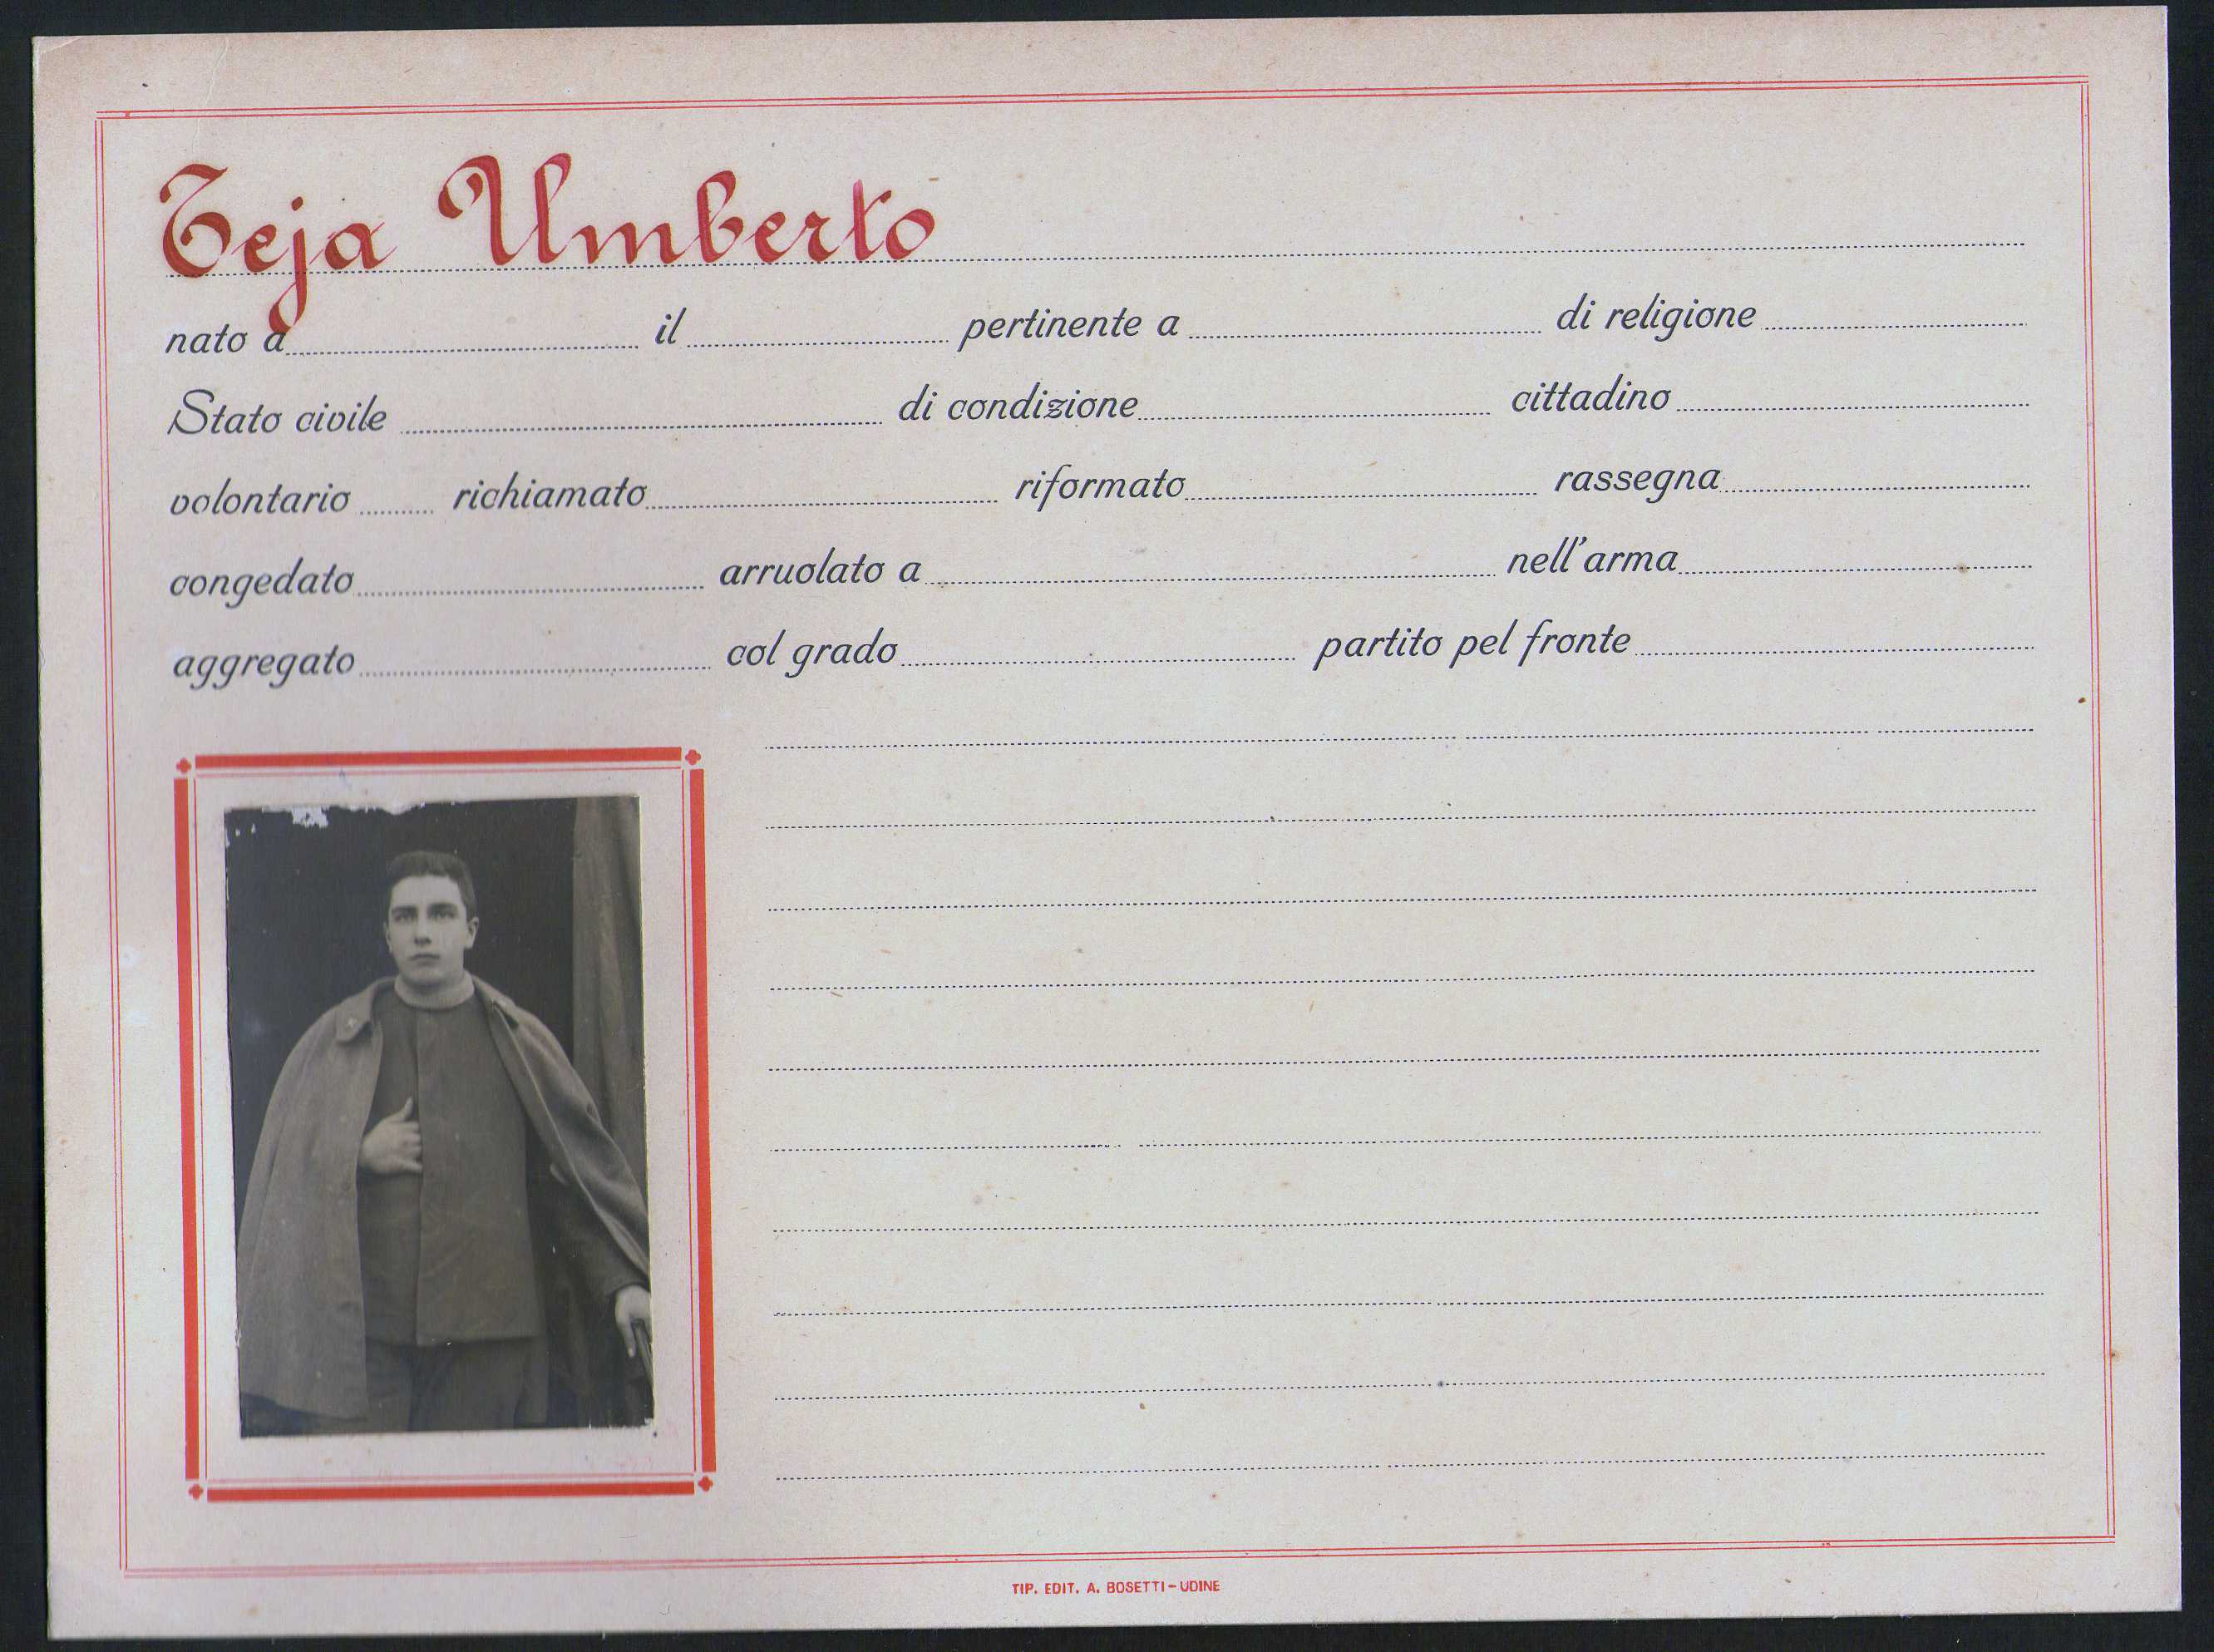 Teja Umberto
nato a il pertinente a di religione
Stato civile di condizione cittadino
volontario richiamato riformato rassegna
congedato arruolato a nell'arma
aggregato col grado partito pel fronte
TIP. EDIT. A. BOSETTI - UDINE